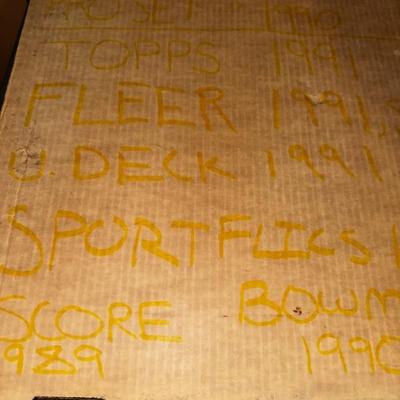 PROSET 1990
TOPPS 1991
FLEER 1991,
U. DECK 1991
SPORTFLICS
SCORE BOWM
989 1990